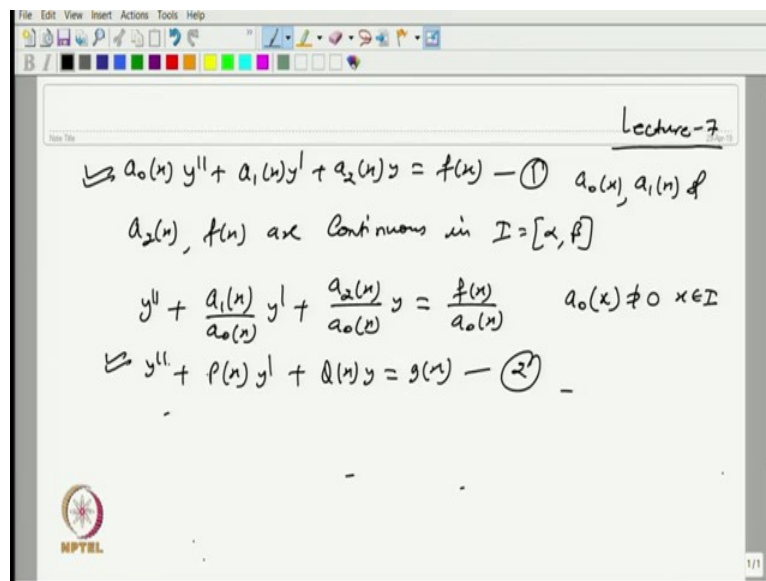 File Edit View Insert Actions Tools Help
B I
Lecture-7
Note Title
a₀(x) y'' + a₁(x) y' + a₂(x) y = f(x) — ① a₀(x), a₁(x) &
a₂(x), f(x) are Continuous in I = [α, β]
y'' + a₁(x)/a₀(x) y' + a₂(x)/a₀(x) y = f(x)/a₀(x) a₀(x) ≠ 0 x ∈ I
y'' + P(x) y' + Q(x) y = g(x) — ②
NPTEL
1/1